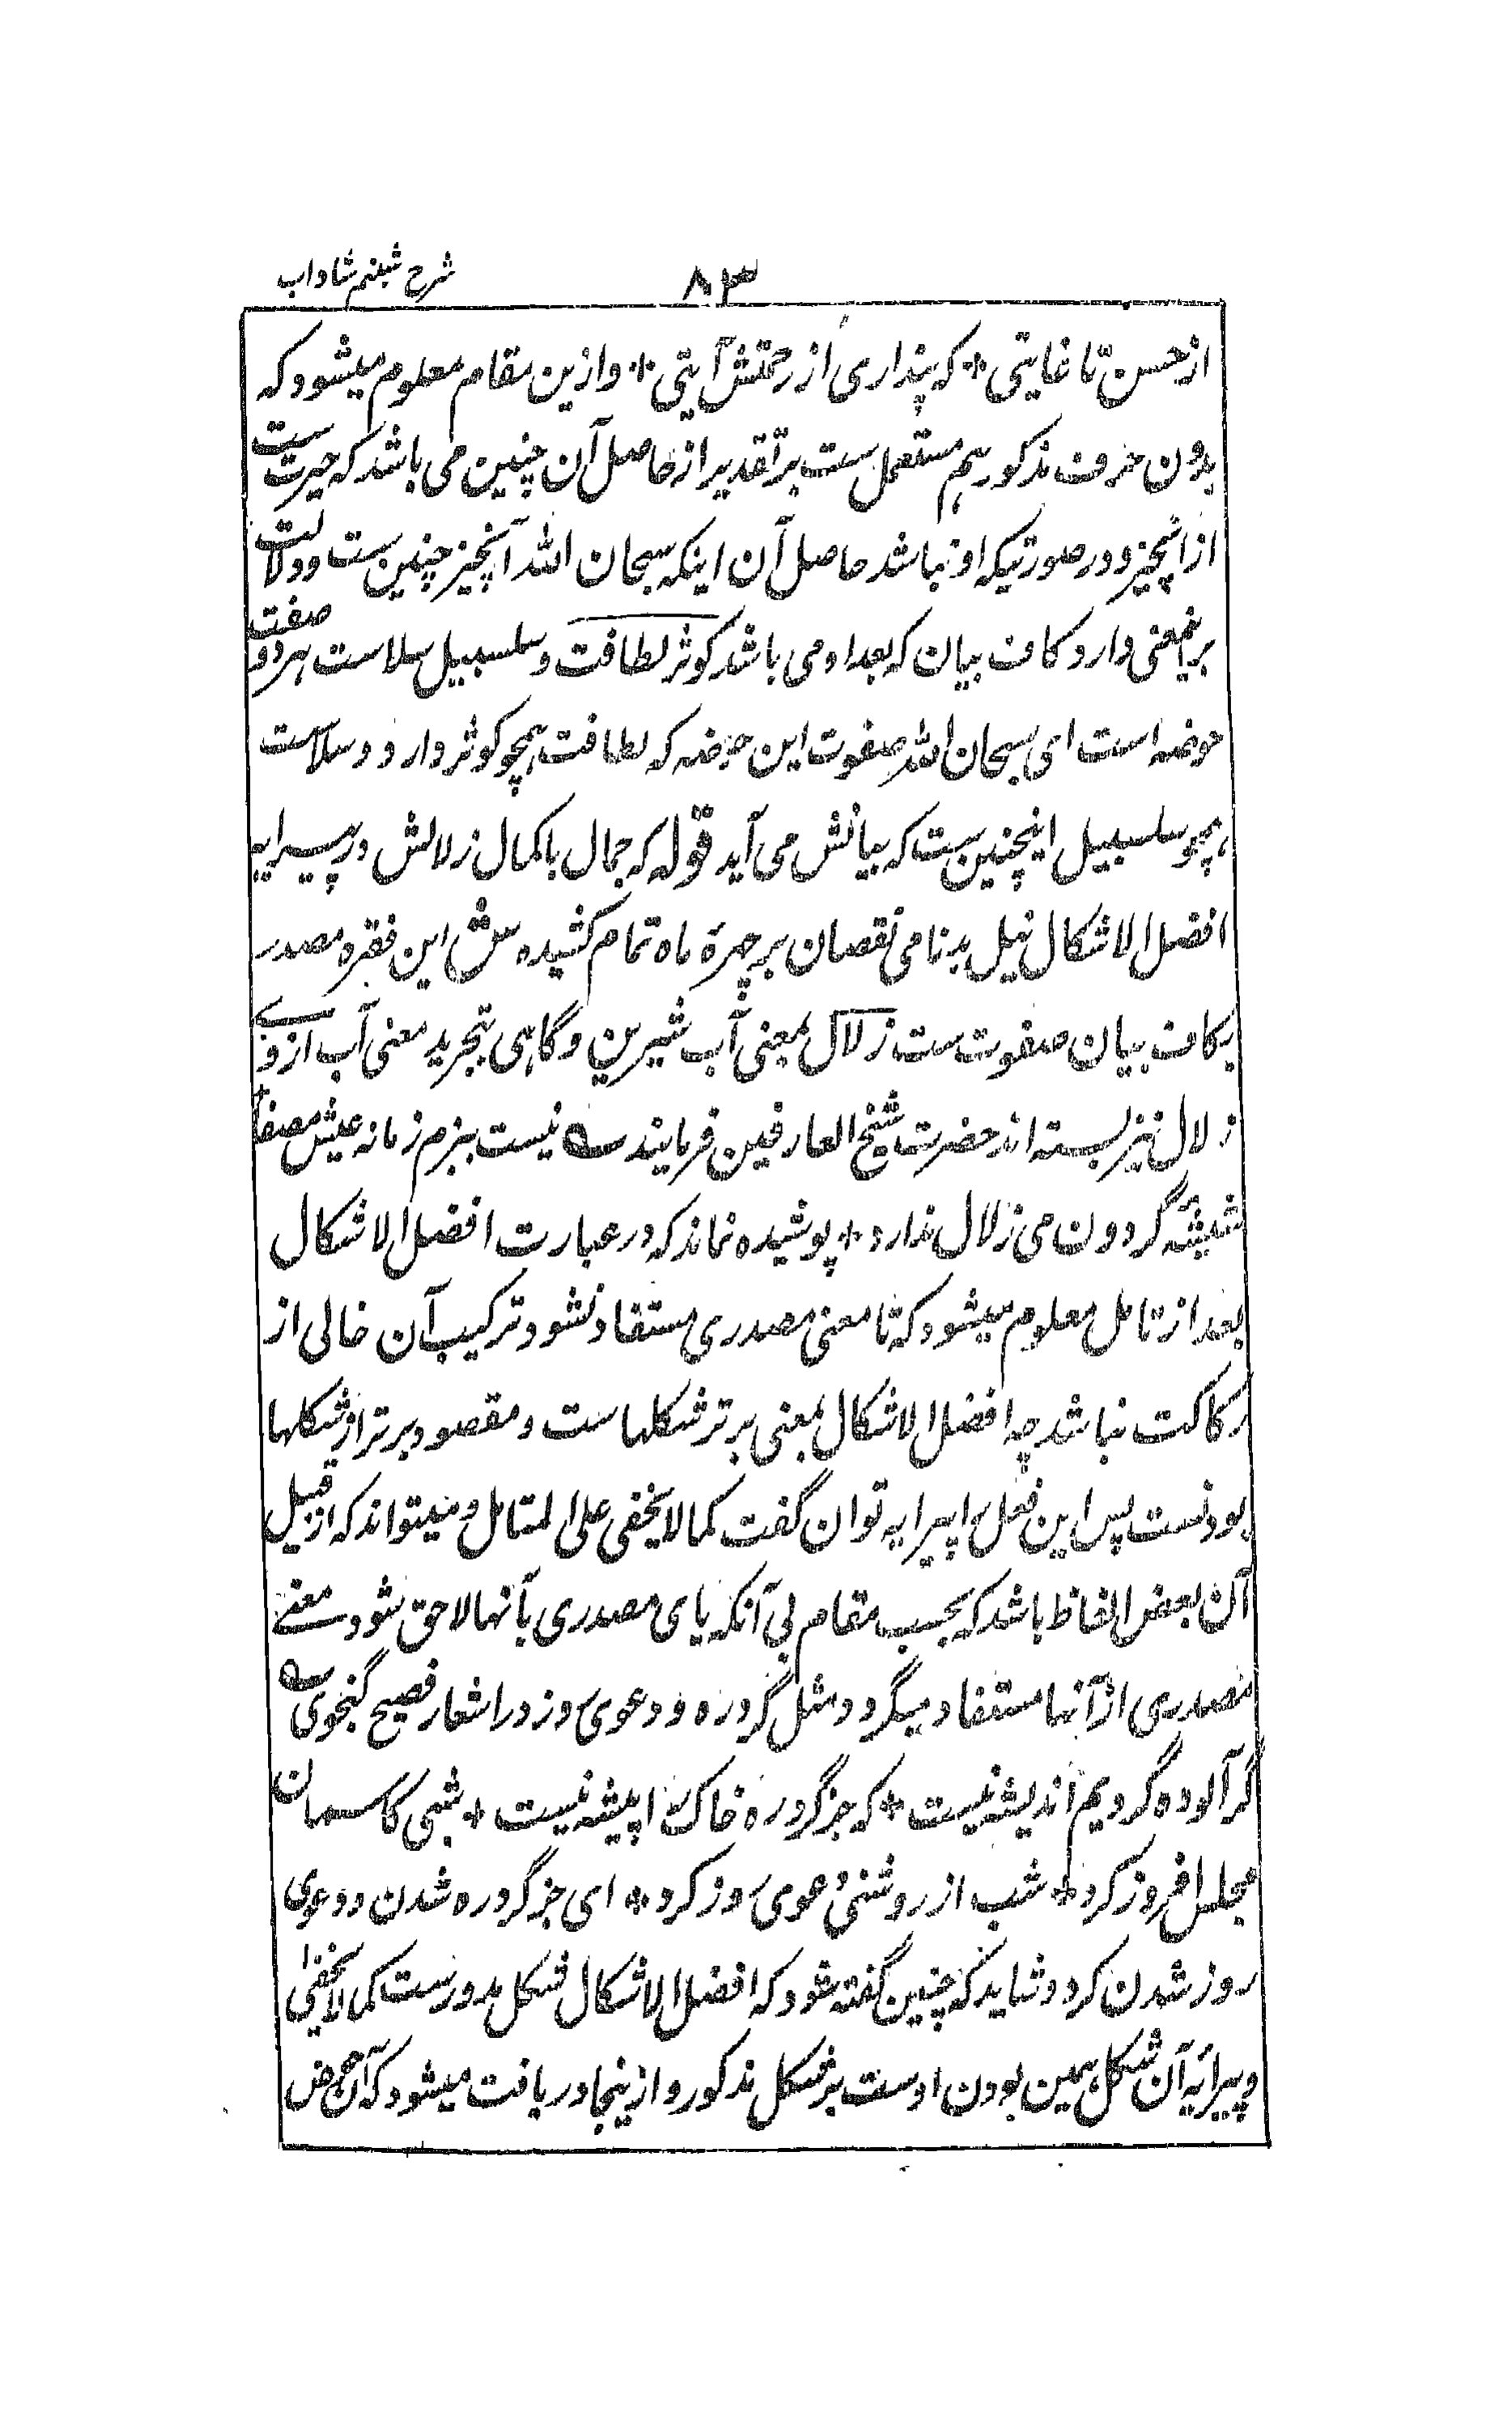 شرح شبنم شاداب
۸۳
از حسن تا غایتی * که پنداری از رحمتش آیتی * و ازین مقام معلوم میشود که
بدون حرف مذکور هم مستعمل ست بر تقدیر از حاصل آن چنین می باشد که حیرت ست
از آنچیز و در صورتیکه او نباشد حاصل آن اینکه سبحان الله آنچیز چنین ست و دلالت
برینمعنی دارد کاف بیان که بعد او می باشد کوثر لطافت و سلسبیل سلاست هر دو صفت
حوضه است ای سبحان الله صفوت این حوضه که لطافت همچو کوثر دارد و سلاست
همچو سلسبیل اینچنین ست که بیانش می آید قوله که جمال باکمال زلالش در پیرایه
افضل الاشکال نیل بدنامی نقصان بر چهرهٔ ماه تمام کشیده ش این فقره مصدر
بکاف بیان صفوت ست زلال بمعنی آب شیرین و گاهی بتجرید معنی آب از وے
زلال نیز بسته اند حضرت شیخ العارفین فرمایند ؎ نیست ببزم زمانه عیش مصفا
شیشهٔ گردون می زلال ندارد * پوشیده نماند که در عبارت افضل الاشکال
بعد از تامل معلوم میشود که تا معنی مصدری مستفاد نشود ترکیب آن خالی از
رکاکت نباشد چه افضل الاشکال بمعنی برتر شکلهاست و مقصود برتر از شکلها
بودنست پس این فعل را پیرایه توان گفت کما لا یخفی علی المتامل و میتواند که از قبیل
آن بعض الفاظ باشد که بحسب مقام بی آنکه یای مصدری بآنها لاحق شود معنے
مصدری از آنها مستفاد میگردد مثل گرد ره و دعوی روز در اشعار فصیح گنجوی ؎
گر آلوده گردیم اندیشه نیست * که جز گرد ره خاک را پیشه نیست * شبی کاسمان
مجلس افروز کرد * شب از روشنی دعوی روز کرد * ای جز گرد ره شدن و دعوی
روز شدن کرد و شاید که چنین گفته شود که افضل الاشکال شکل مدورست کما لا یخفی
و پیرایهٔ آن شکل همین بودن اوست بر شکل مذکور و ازینجا دریافت میشود که آن حوض